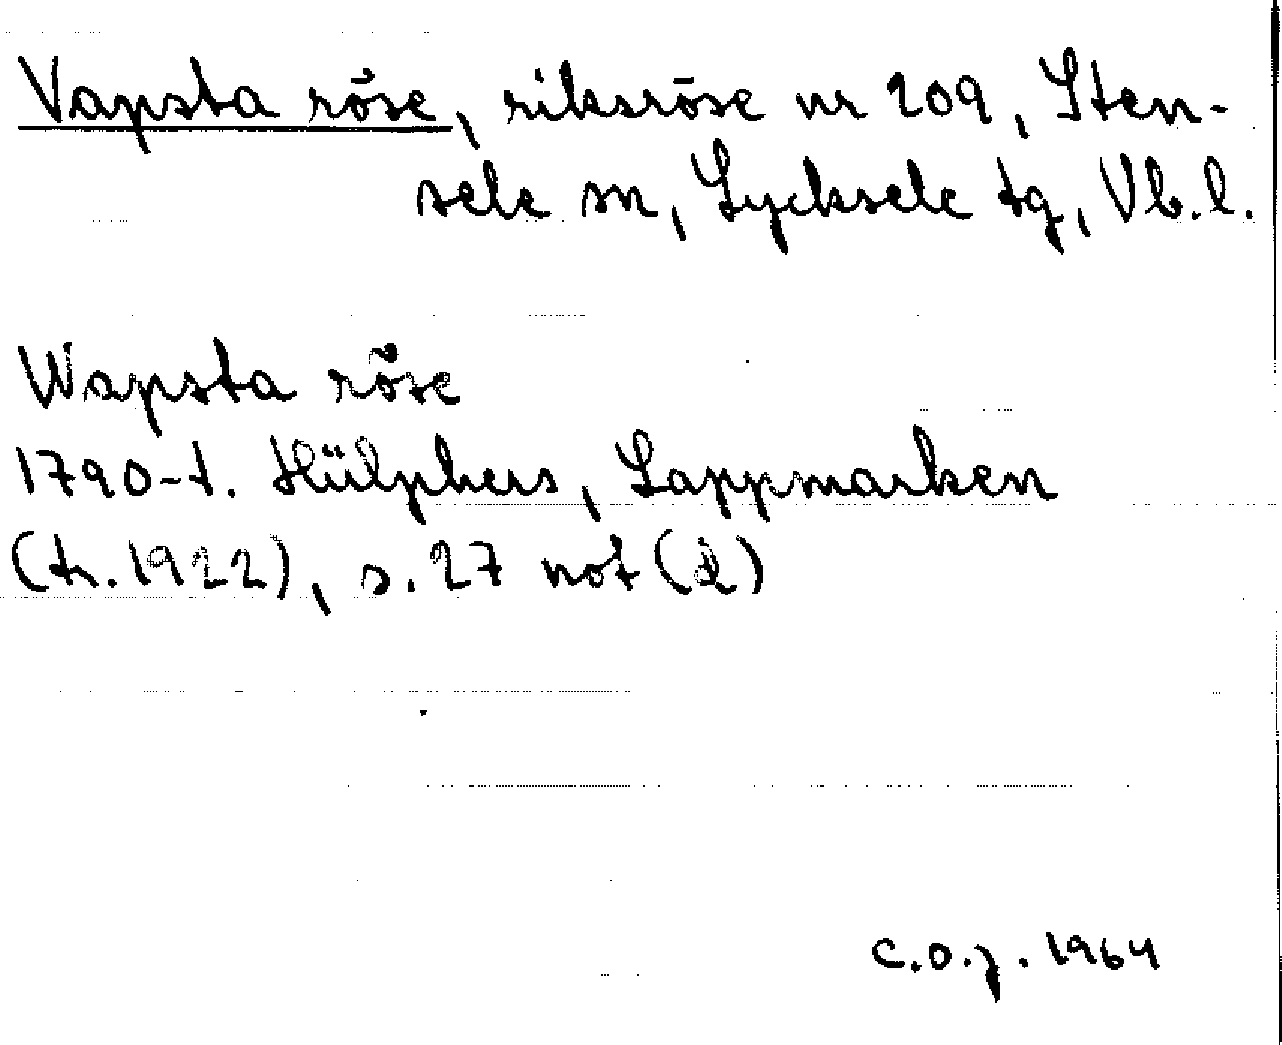 Vapsta röse, riksröse nr 209, Sten-
sele sn, Lycksele tg, Vb.l.
Wapsta röse
1790-t. Hülphers, Lappmarken
(tr. 1922), s. 27 not (2)
C.O.J. 1964